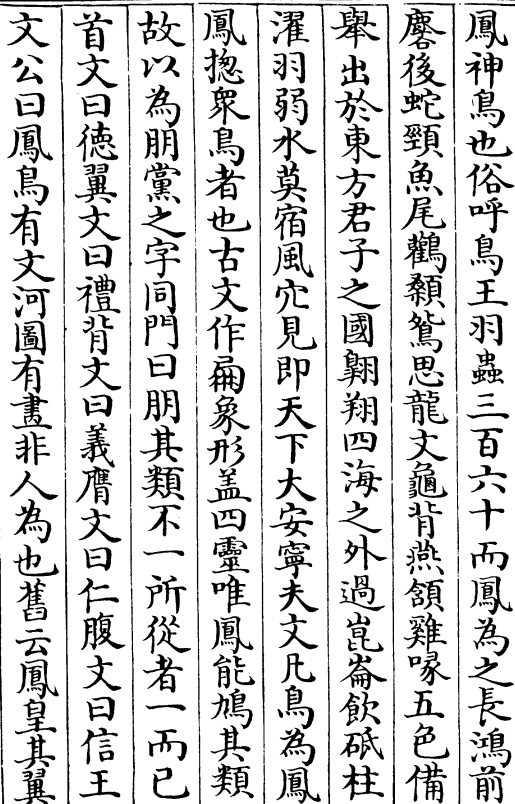 鳳神鳥也俗呼鳥王羽蟲三百六十而鳳為之長鴻前
麐後蛇頸魚尾鸛顙鴛思龍文龜背燕頷雞喙五色備
舉出於東方君子之國翺翔四海之外過崑崙飲砥柱
濯羽弱水莫宿風穴見即天下大安寧夫文凡鳥為鳳
鳳揔眾鳥者也古文作象形盖四靈唯鳳能鳩其類
故以為朋黨之字同門曰朋其類不一所從者一而已
首文曰德翼文曰禮背文曰義膺文曰仁腹文曰信王
文公曰鳳鳥有文河圖有畫非人為也舊云鳳皇其翼